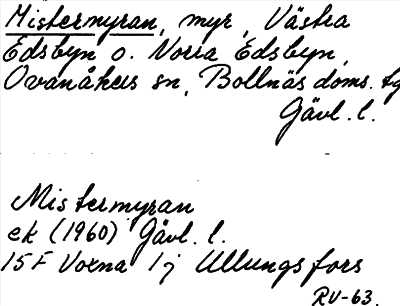 Mistermyran, myr, Västra
Edsbyn o. Norra Edsbyn,
Ovanåkers sn, Bollnäs doms. tg
Gävl. l.
Mistermyran
ek (1960) Gävl. l.
15F Voxna 1j Ullungsfors
RV-63.